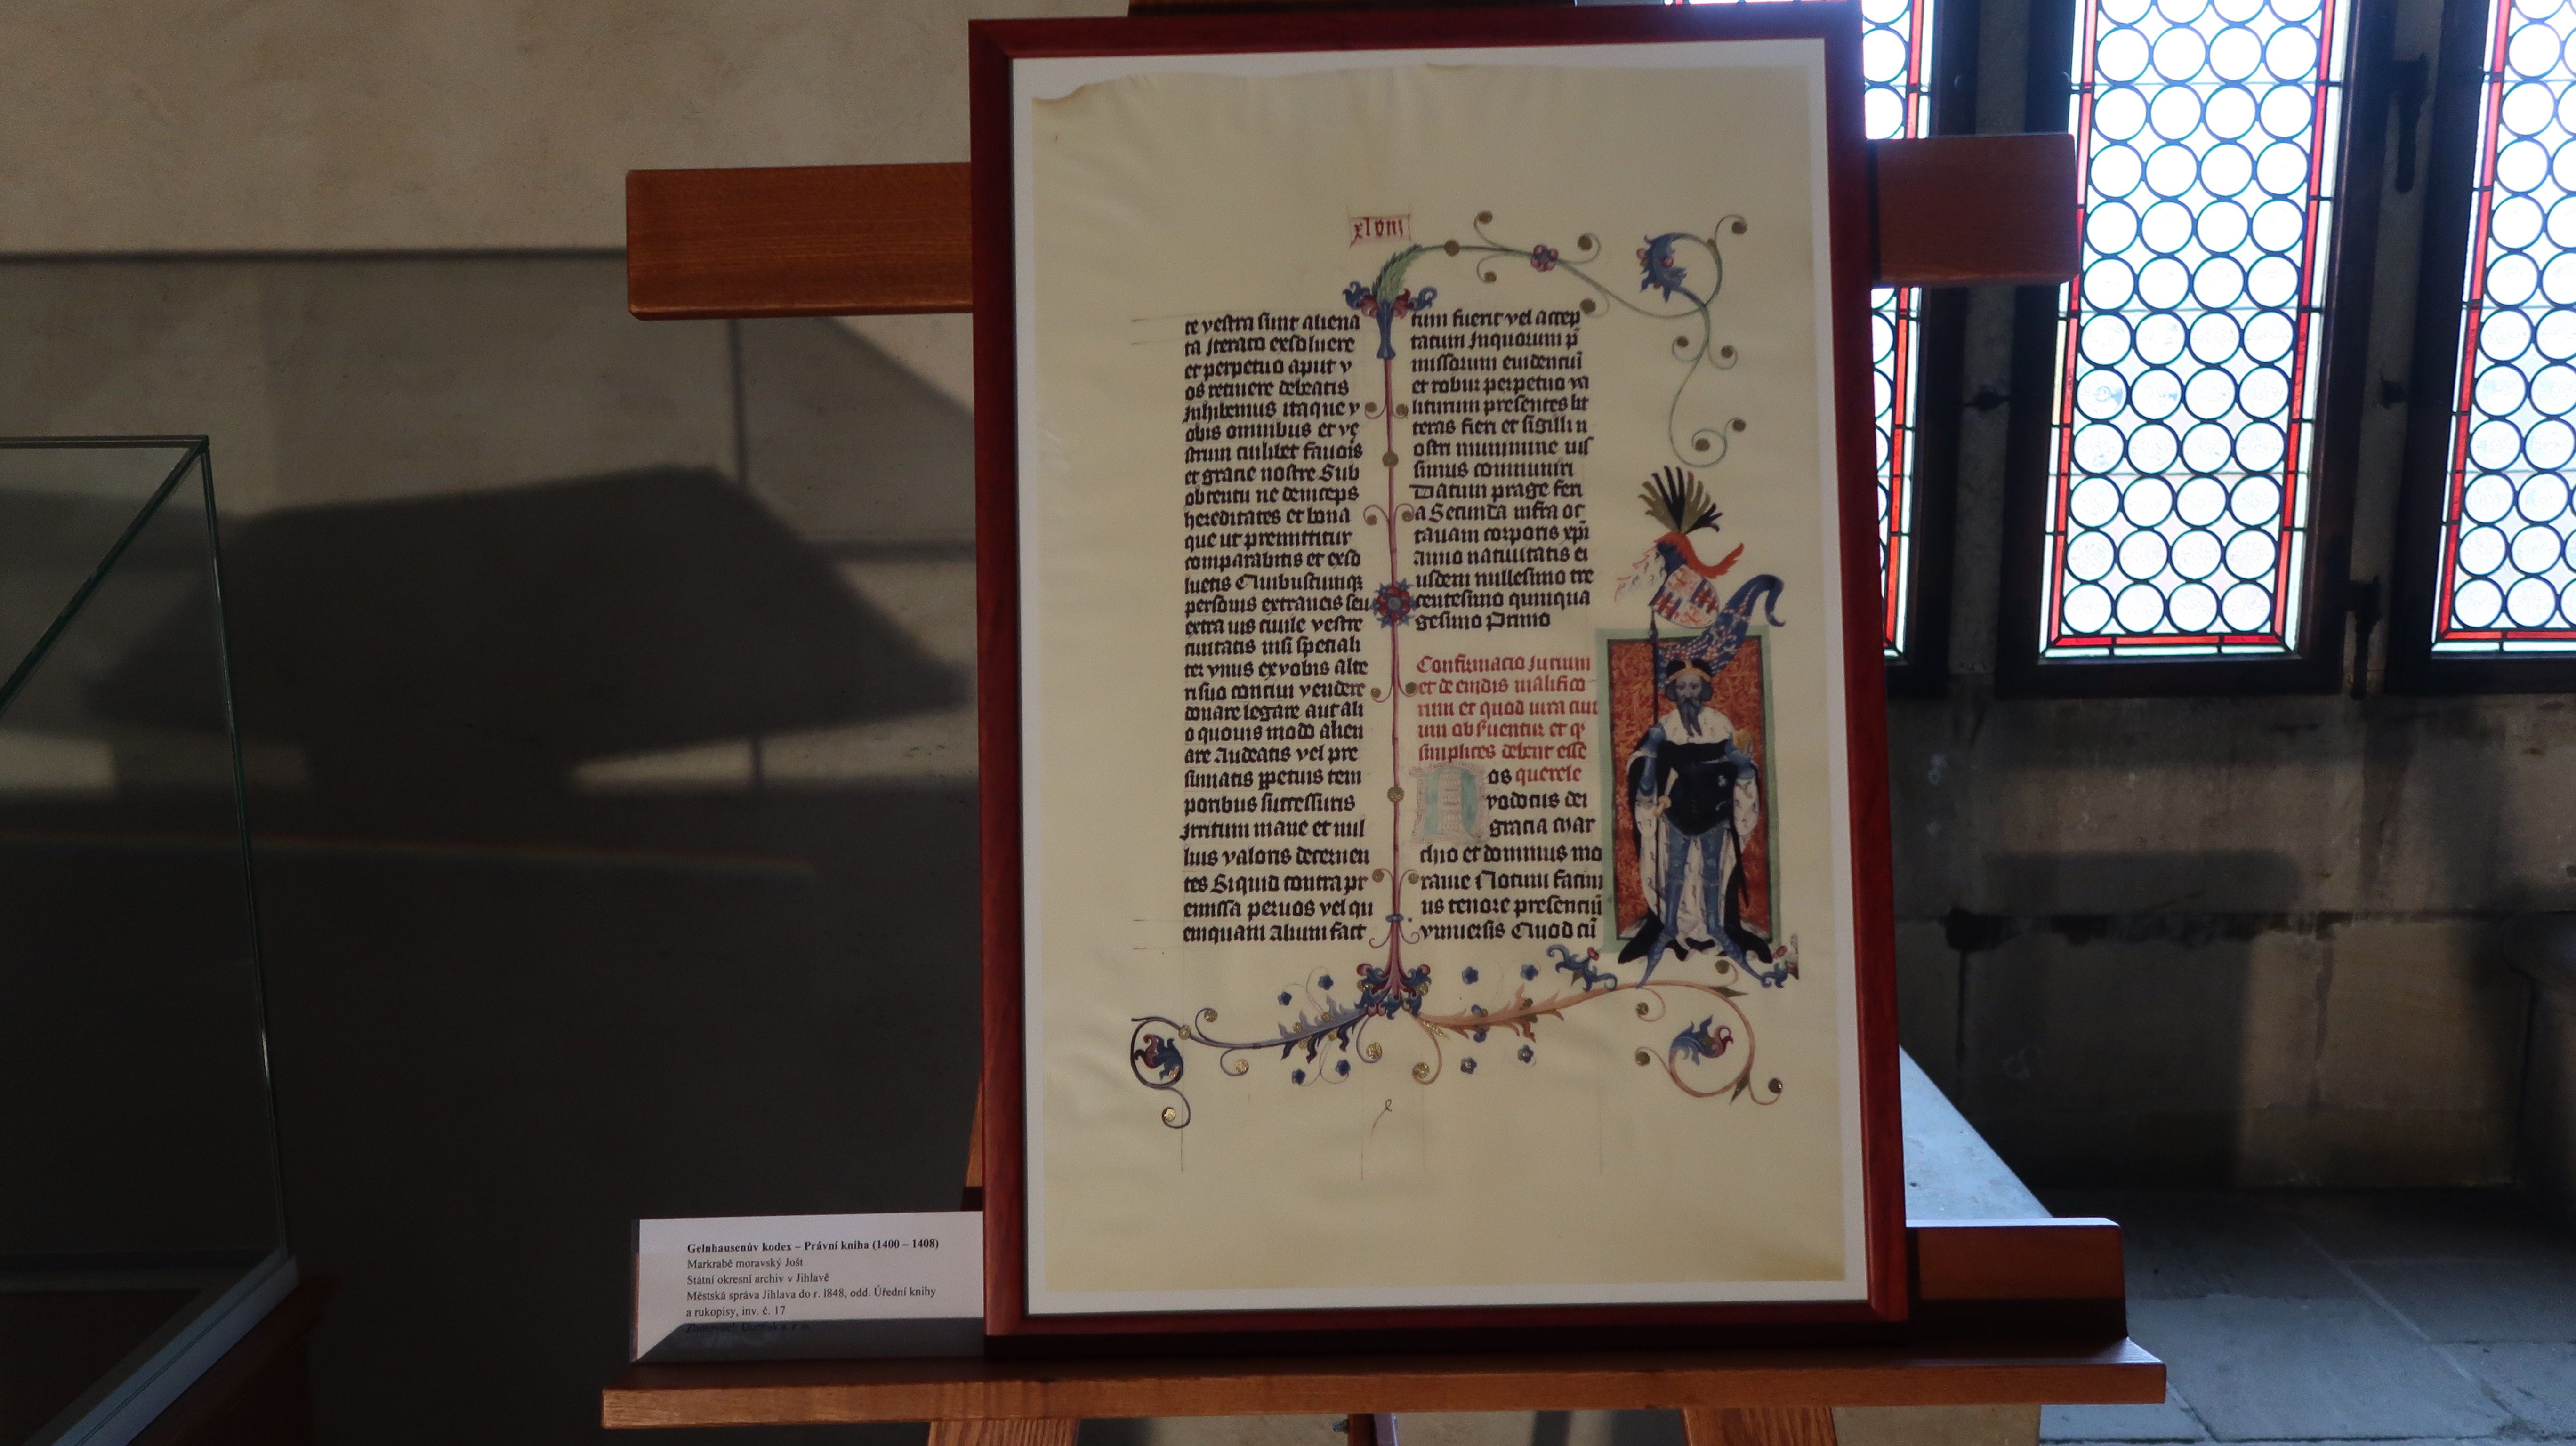 xlviii
te vestra sunt aliena
ta Iterato exsoluere
et perpetuo aput v
os retinere debeatis
Inhibemus itaque v
obis omnibus et ve
strum cuilibet fauois
et gracie nostre Sub
obtentu ne deinceps
hereditates et bona
que ut premittitur
comparabitis et exso
luetis Quibuscunq
personis extraneis seu
extra ius ciuile vestre
ciuitatis nisi speciali
ter vnus ex vobis alte
ri suo conciui vendere
donare legare aut ali
o quouis modo alien
are Audeatis vel pre
sumatis ppetuis tem
poribus successuris
Irritum inane et nul
lius valoris decernen
tes Siquid contra pr
emissa per uos vel qu
emquam Alium fact
tum fuerit vel accep
tatum Inquorum p
missorum euidenciu
et robur perpetuo va
liturum presentes lit
teras fieri et sigilli n
ostri munimine iuss
simus communiri
Datum prage feri
a Secunda infra oc
tauam corporis xpi
Anno natiuitatis ei
usdem millesimo tre
centesimo quinqua
gesimo Primo
Confirmacio Iurium
et de
et quod iura ciui
um obseruentur et q
simplices debent esse
os querele
Nos Iodocus dei
gracia Mar
chio et dominus mo
rauie Notum facim
us tenore presenciu
vniuersis Quod cu
Gelnhausenův kodex – Právní kniha (1400 – 1408)
Markrabě moravský Jošt
Státní okresní archiv v Jihlavě
Městská správa Jihlava do r. 1848, odd. Úřední knihy
a rukopisy, inv. č. 17